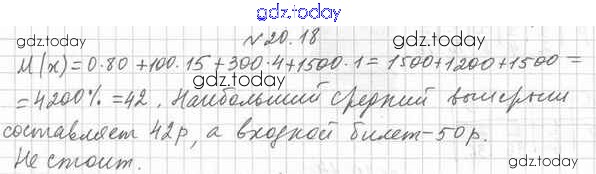 gdz.today
№ 20.18
gdz.today gdz.today
M(x)=0·80+100·15+300·4+1500·1=1500+1200+1500=
gdz.today
=4200%=42. Наибольший средний выигрыш
составляет 42р, а входной билет-50р.
gdz.today gdz.today
Не стоит.
gdz.today